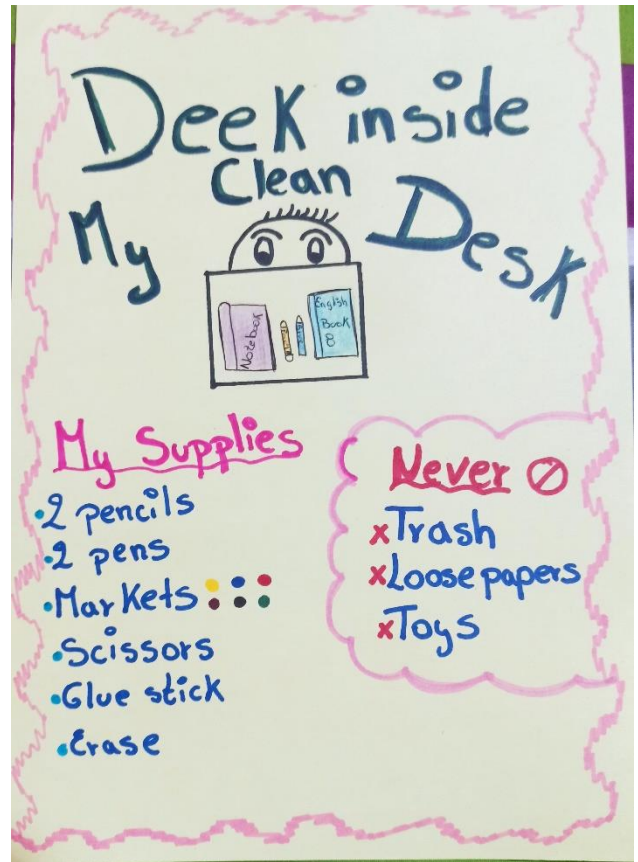 Deek inside
My Clean Desk
Notebook
English
Book
8
My Supplies
• 2 pencils
• 2 pens
• Markets
• Scissors
• Glue stick
• Erase
Never
x Trash
x Loose papers
x Toys